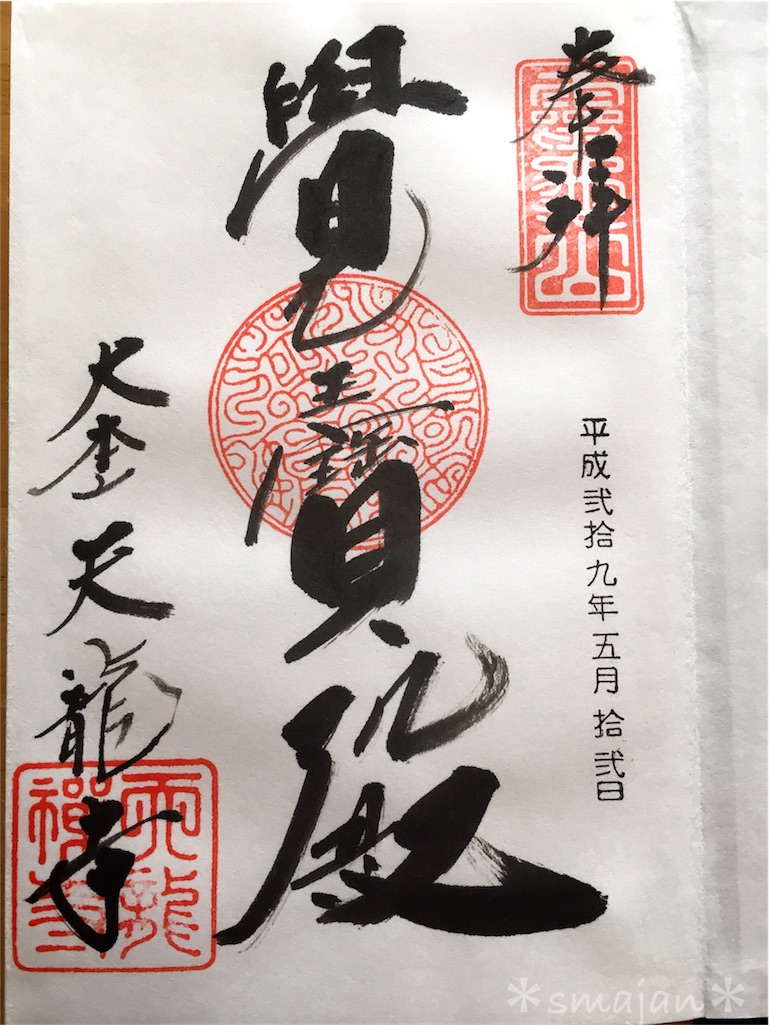 奉拝
平成弐拾九年五月拾弐日
覺王寶殿
大本山天龍寺
霊亀山
天龍禅寺
＊smajan＊